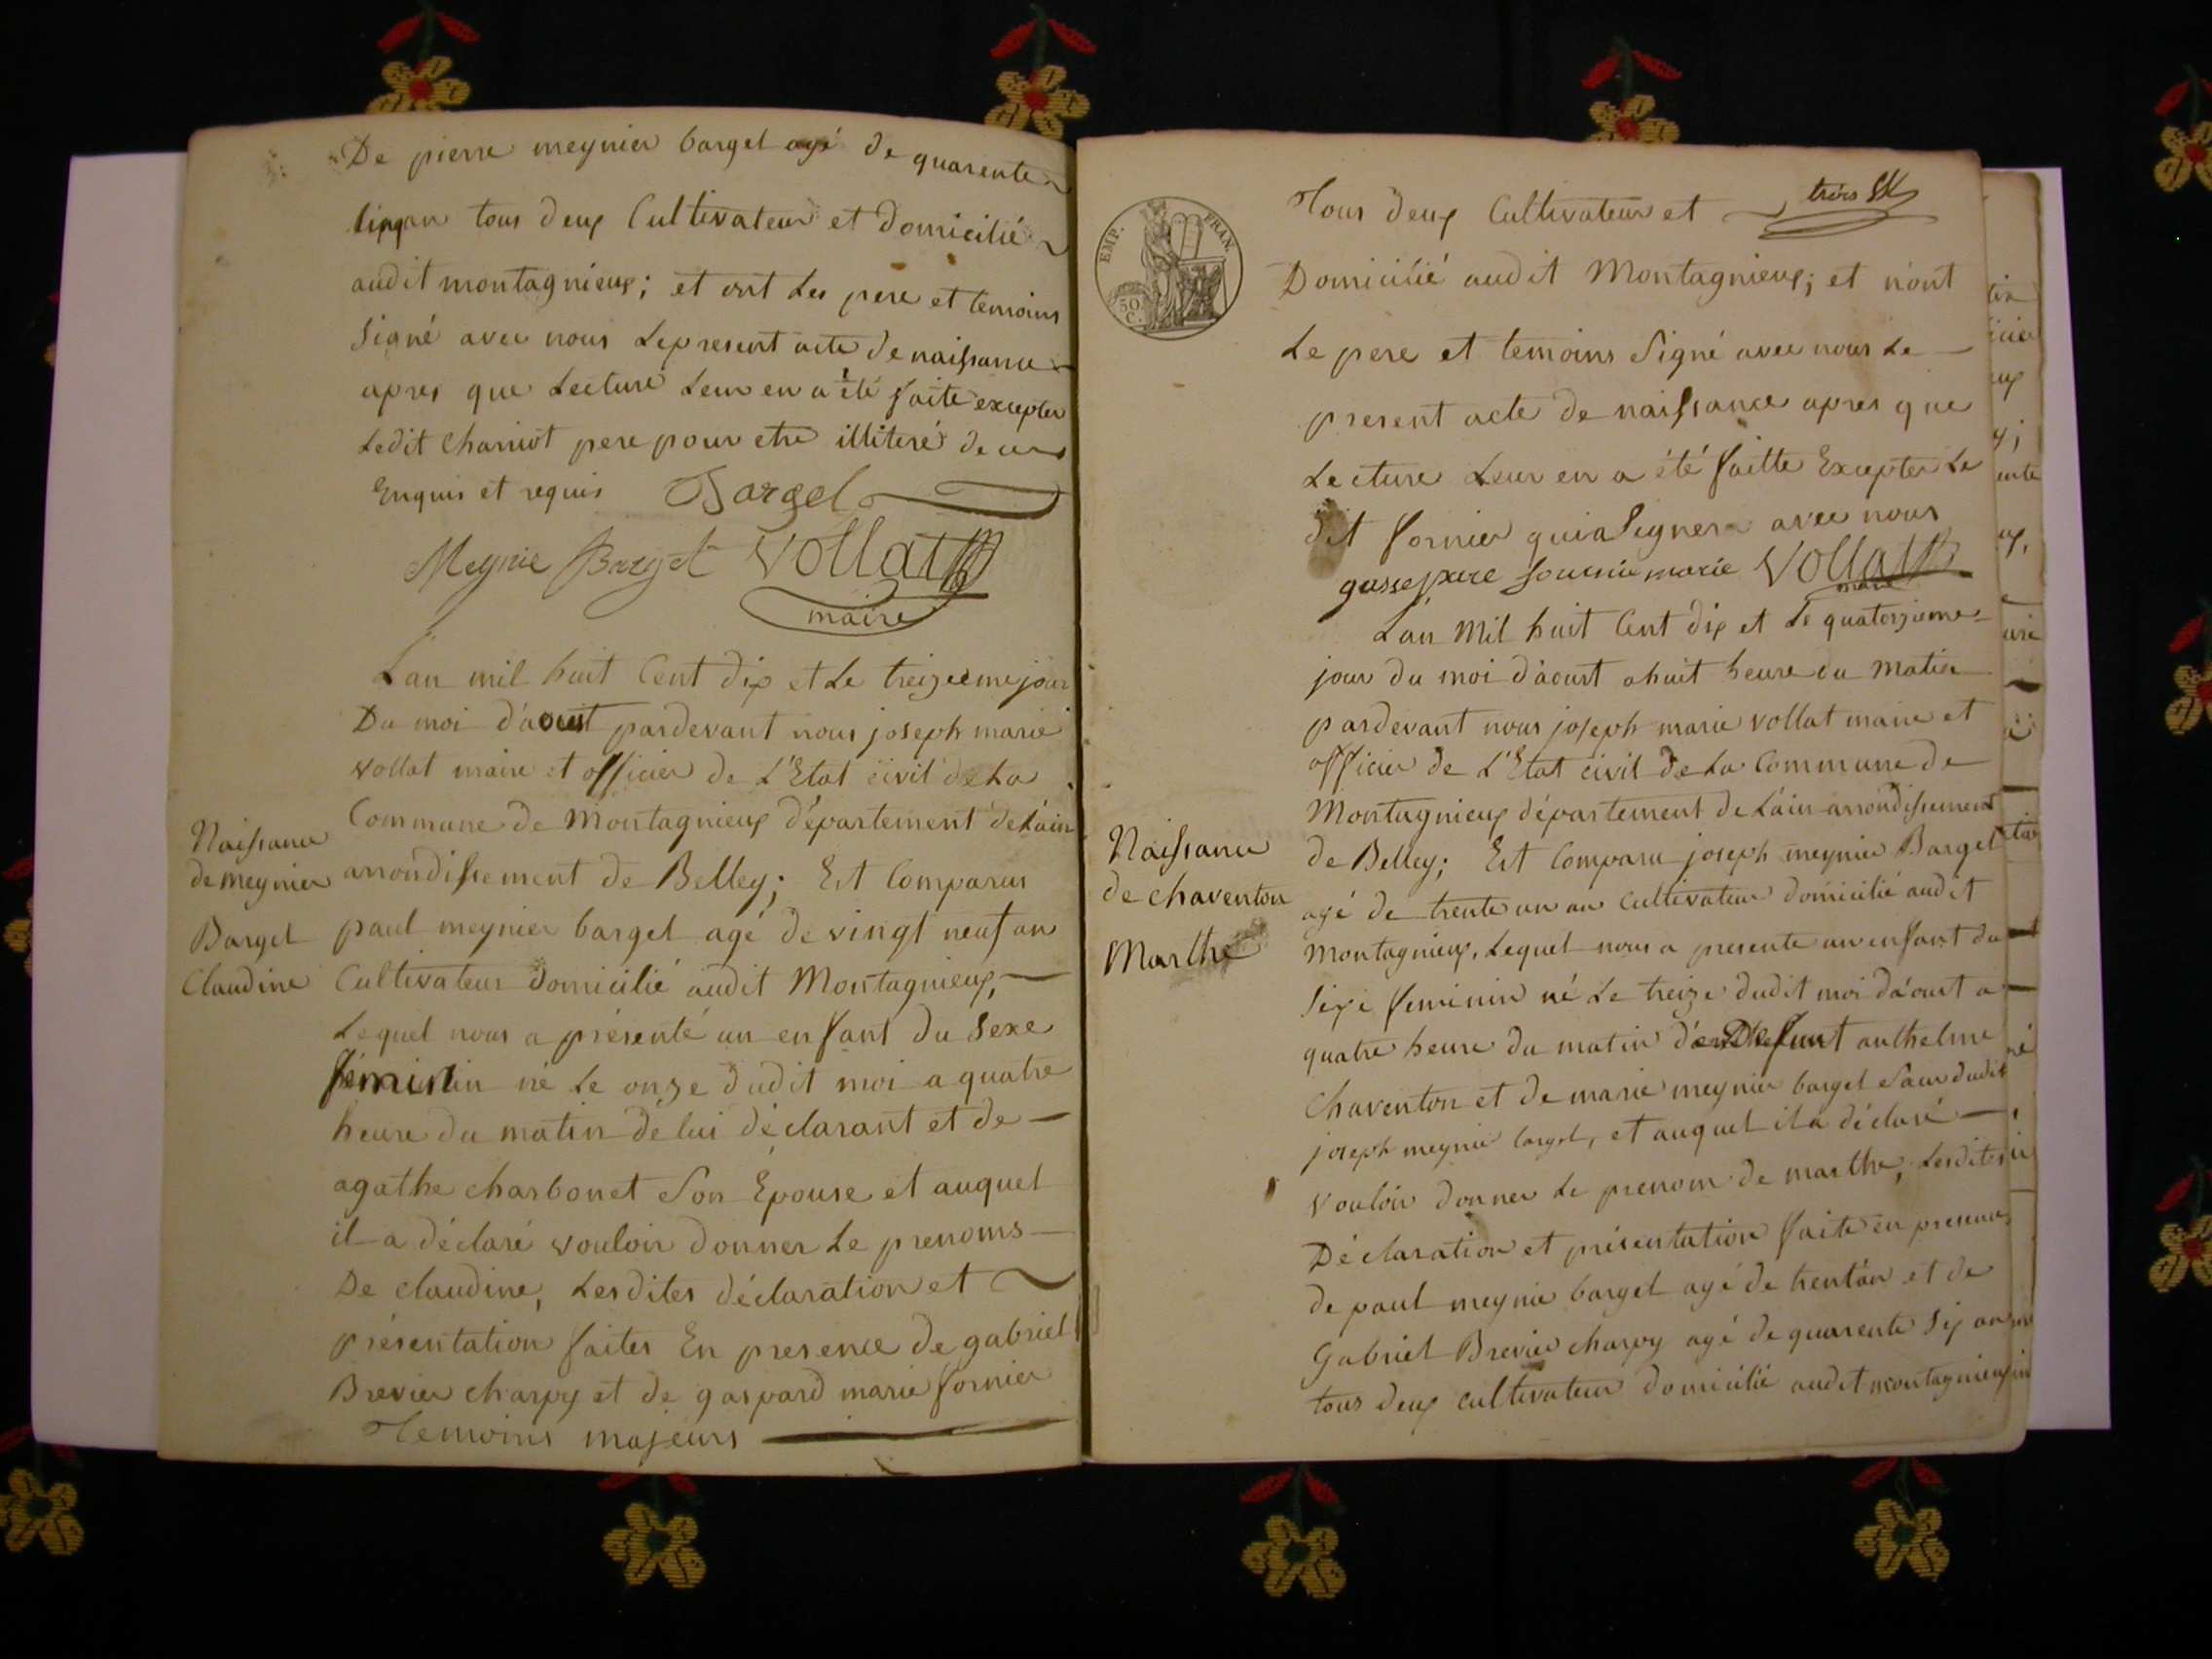 De pierre meynier barget agé de quarente
cinq an tous deux Cultivateur et Domicilié
audit montagnieux; et ont Les pere et temoins
Signé avec nous Le present acte de naissance
apres que Lecture Leur en a été faite excepter
Ledit Charriot pere pour etre illiteré de ce
Enquis et requis Bargel
Meynie Barget Vollat
maire
L'an mil huit Cent dix et Le treizieme jour
Du moi d'aoust pardevant nous joseph marie
vollat maire et officier de L'Etat civil de La
Commune de Montagnieux département de L'ain
arrondissement de Belley; Est Comparus
paul meynier barget agé de vingt neuf an
Cultivateur domicilié audit Montagnieux,
Lequel nous a présenté un enfant du Sexe
féminin né Le onze dudit moi a quatre
heure du matin de lui déclarant et de
agathe charbonet Son Epouse et auquel
il a déclaré vouloir donner Le prenoms
De claudine, Lesdites déclaration et
présentation faites En presence de gabriel
Brevier charpy et de gaspard marie fornier
Temoins majeurs
Naissance
de meynier
Barget
Claudine
EMP. FRAN.
50
C.
Tous deux Cultivateur et
Domicilié audit Montagnieux; et n'ont
Le pere et temoins Signé avec nous Le
present acte de naissance apres que
Lecture Leur en a été faitte Excepter Le
dit fornier qui a Signer avec nous
marie Vollat
maire
L'an Mil huit Cent dix et Le quatorzieme
jour du moi d'aoust a huit heure du Matin
pardevant nous joseph marie vollat maire et
officier de L'Etat civil de La Commune de
Montagnieux département de L'ain arrondissement
de Belley; Est Comparu joseph meynier Barget
agé de trente un an Cultivateur domicilié audit
Montagnieux, Lequel nous a presente un enfant du
Sexe feminin né Le treize dudit moi d'aoust a
quatre heure du matin Defunt anthelme
Chaventon et de marie meynier barget Sœur dudit
joseph meynier barget, et auquel il a déclaré
vouloir donner Le prenom de marthe, Lesdites
Déclaration et présentation faite en presence
de paul meynier barget agé de trent'an et de
Gabriel Brevier charpy agé de quarente Six an
tous deux cultivateur domicilié audit montagnieux
Naissance
de chaventon
Marthe